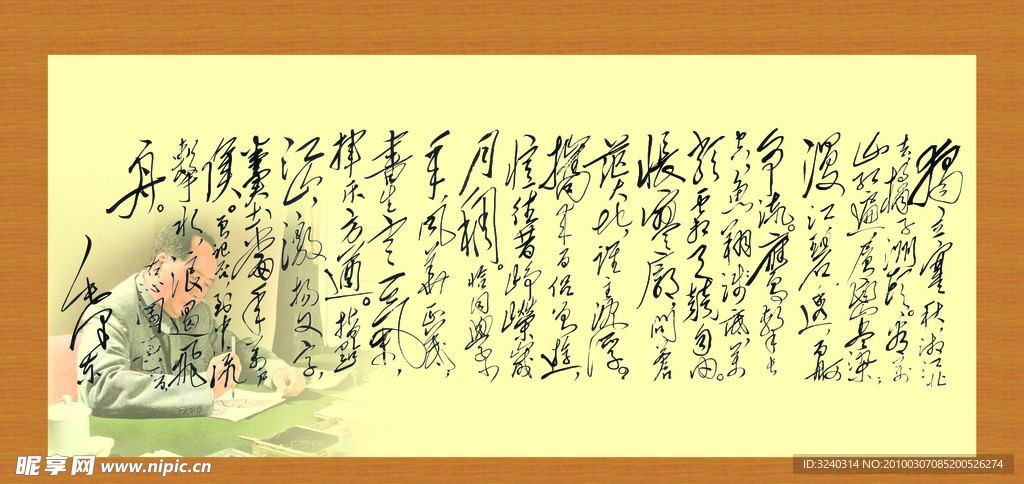 独立寒秋,湘江北
去,橘子洲头。看万
山红遍,层峦尽染;
漫江碧透,百舸
争流。鹰击长
空,鱼翔浅底,万
类霜天竞自由。
怅寥廓,问苍
茫大地,谁主沉浮。
携来百侣曾游,
忆往昔峥嵘岁
月稠。恰同学少
年,风华正茂,
书生意气,
挥斥方遒。指点
江山,激扬文字,
粪土当年万户
侯。曾记否,到中流
击水,浪遏飞
舟。
毛泽东
昵享网 www.nipic.cn
ID:3240314 NO:20100307085200526274